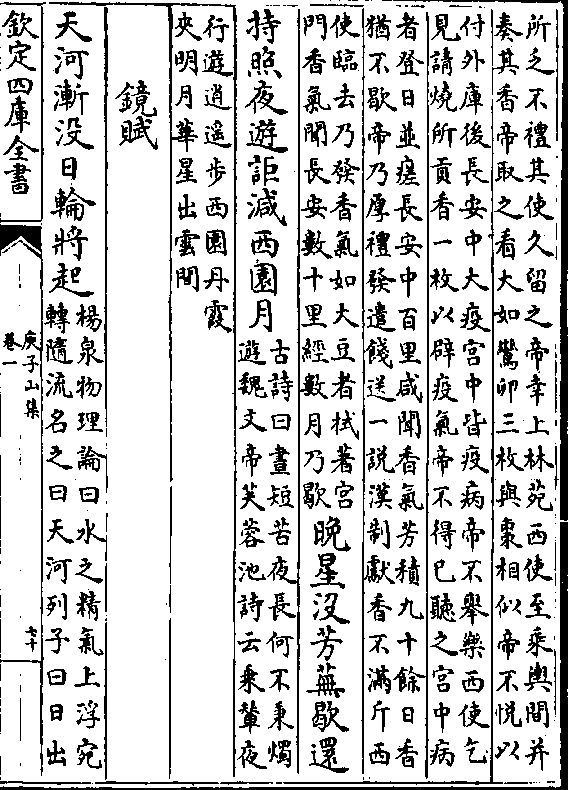 所乏不禮其使久留之帝幸上林苑西使至乘輿間并
奏其香帝取之看大如鷰卵三枚與棗相似帝不悦以
付外庫後長安中大疫宫中皆疫病帝不舉樂西使乞
見請燒所貢香一枚以辟疫氣帝不得已聽之宫中病
者登日並瘥長安中百里咸聞香氣芳積九十餘日香
猶不歇帝乃厚禮發遣餞送一説漢制獻香不滿斤西
使臨去乃發香氣如大豆者拭著宫
門香氣聞長安數十里經數月乃歇
晚星没芳蕪歇還
持照夜遊詎減西園月
古詩曰晝短苦夜長何不秉燭
遊魏文帝芙蓉池詩云乘輦夜
行遊逍遥步西園丹霞
夾明月華星出雲間
鏡賦
天河漸没日輪將起
楊泉物理論曰水之精氣上浮宛
轉隨流名之曰天河列子曰日出
欽定四庫全書
庾子山集
卷一
七十